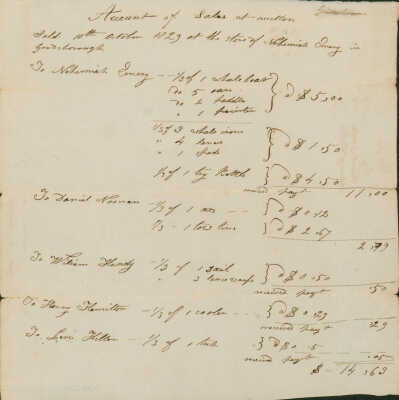 Account of Sales at auction
Sold 10th October 1829 at the store of Nehemiah Emery in
To Nehemiah Emery – 1/3 of 1 whale boat } @ $ 5,00
do 5 oars
do 2 paddles
" 1 painter
1/3 of 3 whale irons } @ $ 1.50
" 4 lances
" 1 spade
1/3 of 1 try Kettle } @ $ 4,50
recvd payt 11,00
To Daniel Noonan – 1/3 of 1 -- } @ $ 0.12
1/3 – 1 tow line } @ $ 2.67
2.79
To William Handy – 1/3 of 1 sail } @ $ 0.50
" 3
recvd payt .50
To Henry Hamilton – 1/3 of 1 cooler -- } @ $ 0.29
recvd payt .29
To Levi Hilton – 1/3 of 1 tub } @ $ 0.5
recvd payt .05
$ – 14,63